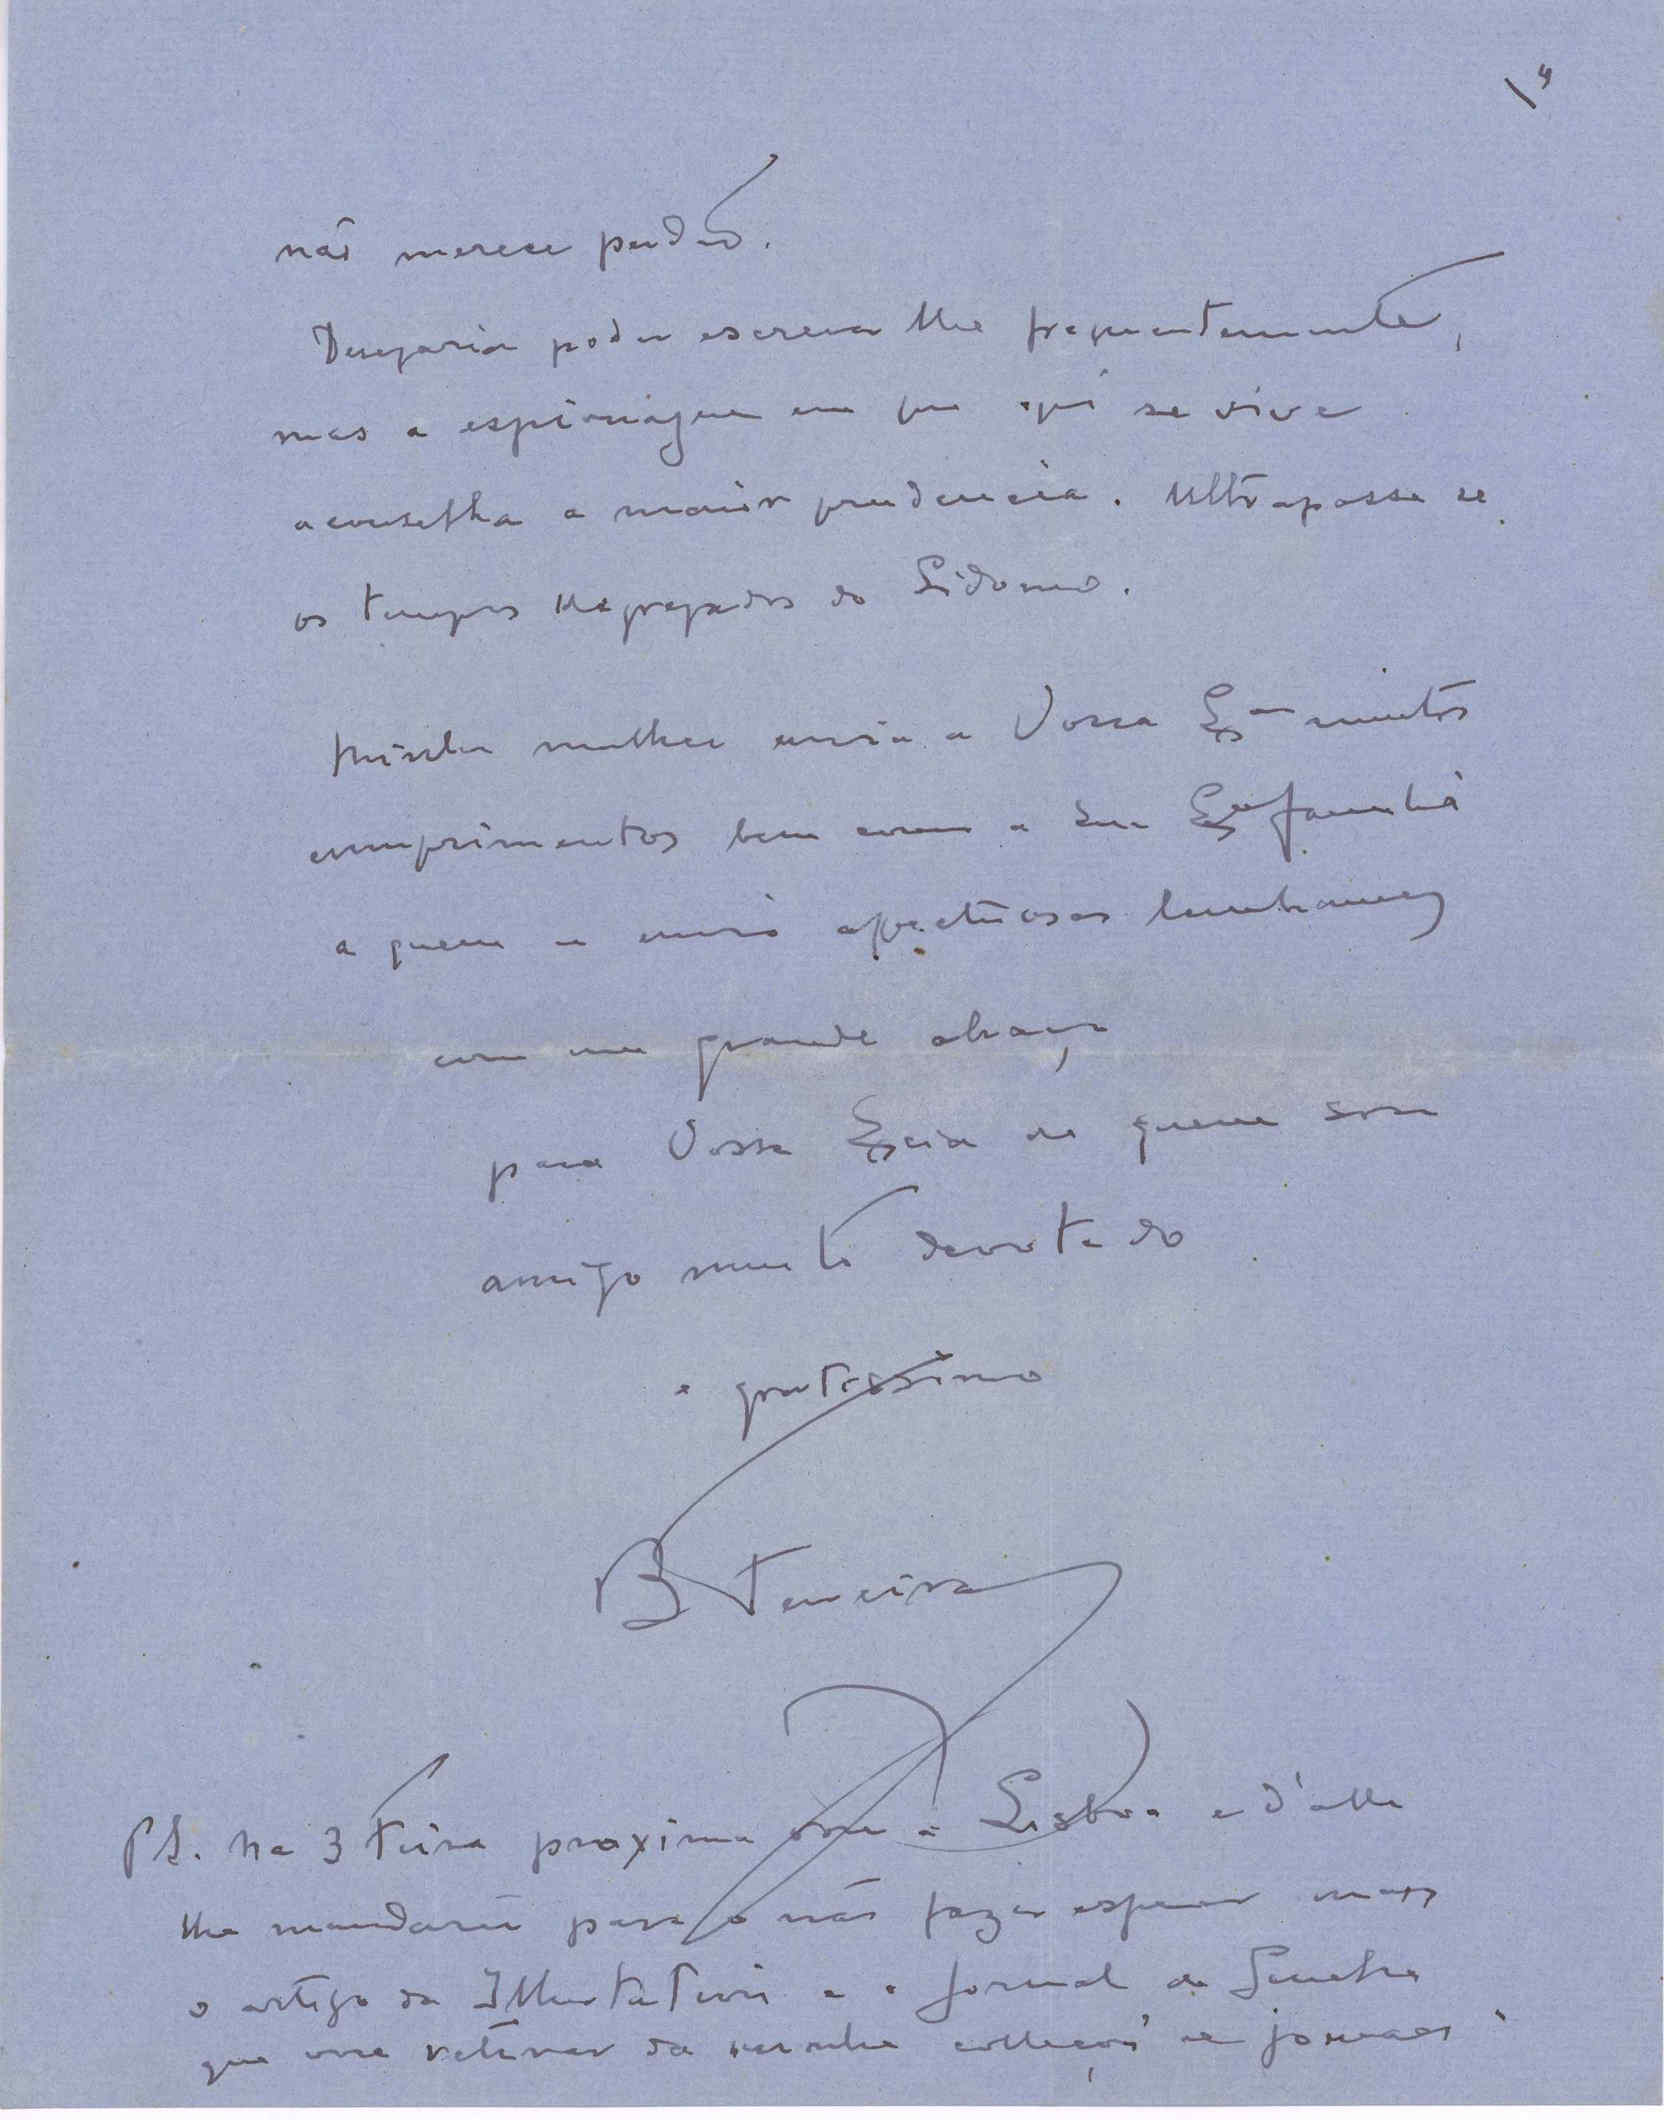 não merece perdão.
Desejaria poder escrever lhe frequentemente,
mas a espionagem em que aqui se vive
aconselha a maior prudencia. Ultrapassa se
os tempos do Sidonio.
Minha mulher envia a Vossa Exª muitos
cumprimentos bem como a sua Exma familia
a quem eu envio afectuosas lembranças
com um grande abraço
para Vossa Excia de quem sou
amigo muito devotado
e gratissimo
B Teixeira
PS. Na 3 feira proxima vou a Lisboa e d'alli
lhe mandarei para o não fazer esperar mais
o artigo da e o Jornal de Genebra
que vou retirar da minha collecção de jornaes